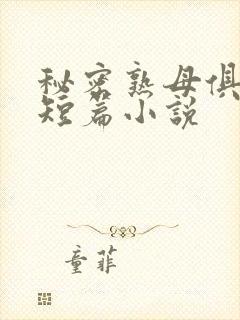 秘密熟母俱
短篇小说
童菲